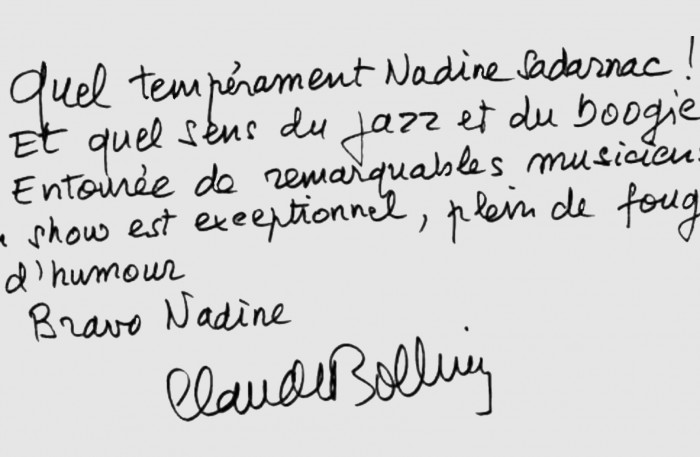 Quel tempérament Nadine Sadarnac !
Et quel sens du jazz et du boogie
Entourée de remarquables musiciens
show est exceptionnel, plein de foug
d'humour
Bravo Nadine
Claude Bolling